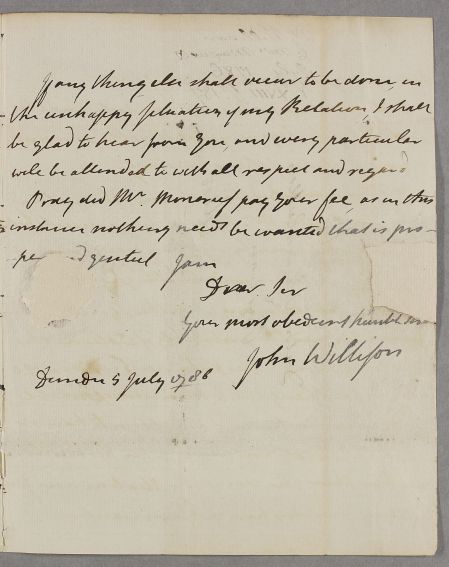 If any thing else shall occur to be done, in
the unhappy situation of my Relation, I shall
be glad to hear from you, and every particular
will be attended to with all respect and regard
Pray did Mr. Moncrief pay your fee, as in this
instance nothing needs be wanted that is pro-
per and genteel I am
Dear Sir
Your most obedient humble
John Willison
Dundee 5 July 1786